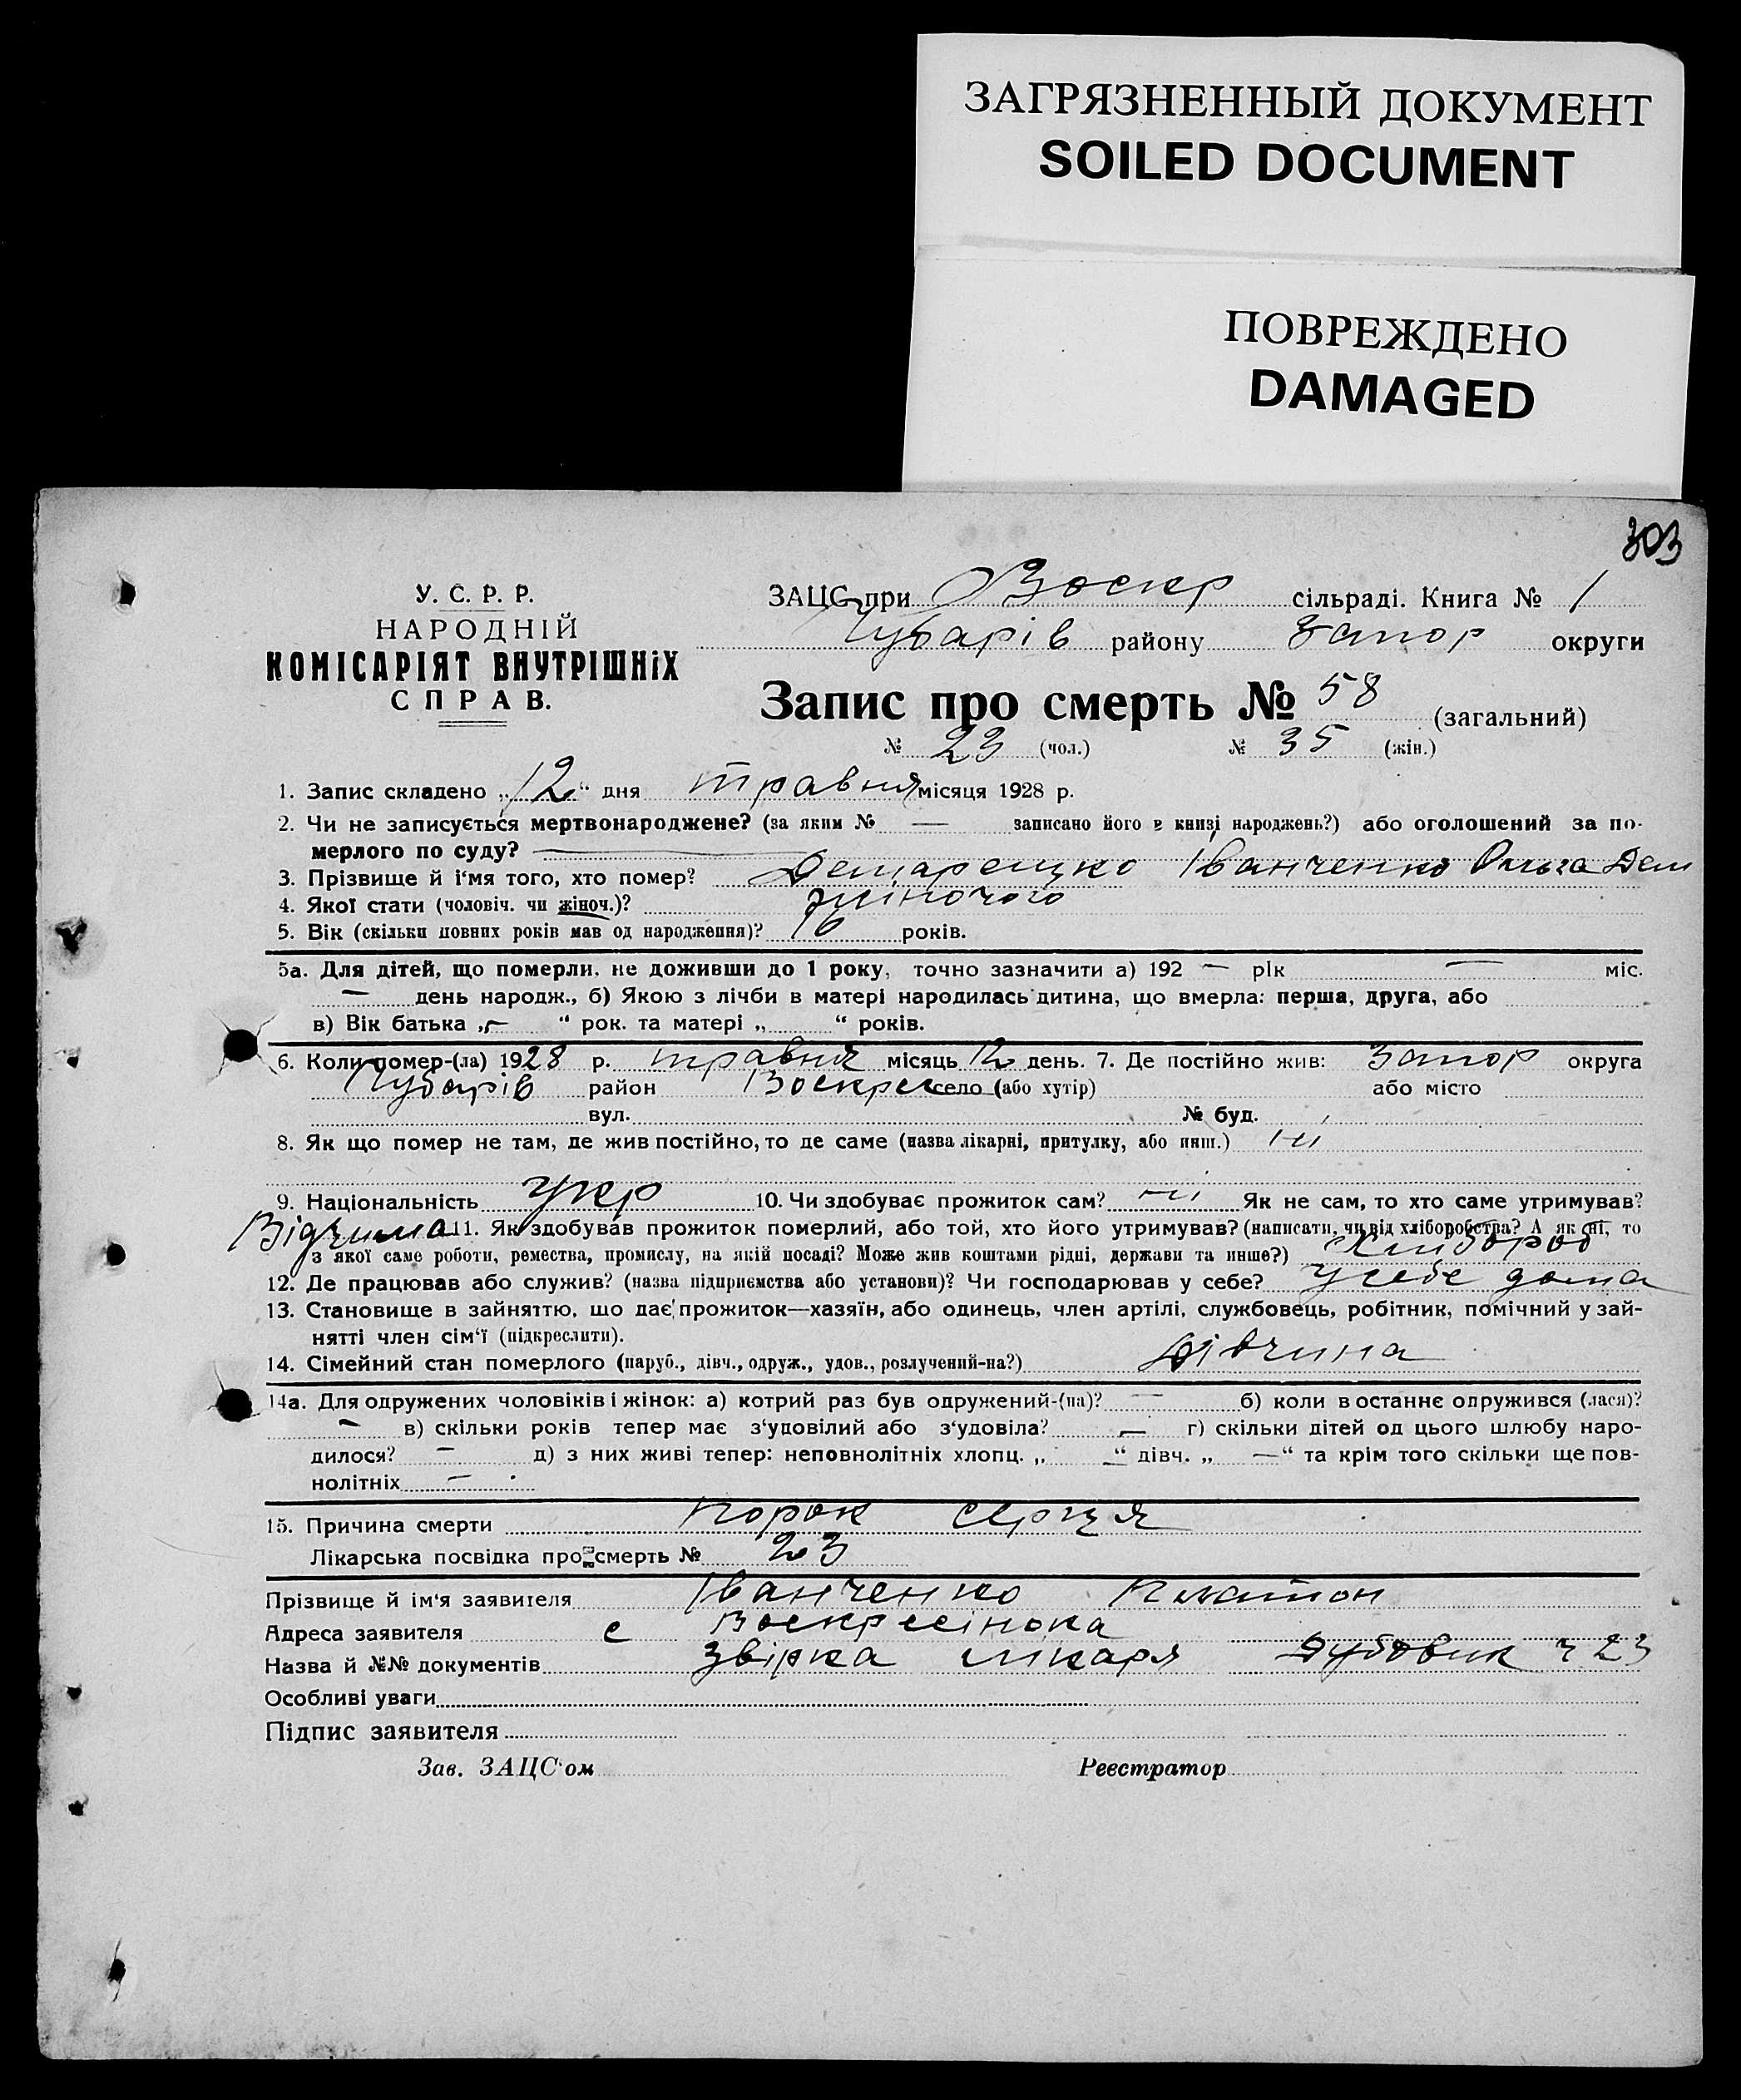 ЗАГРЯЗНЕННЫЙ ДОКУМЕНТ
SOILED DOCUMENT
ПОВРЕЖДЕНО
DAMAGED
303
У. С. Р. Р.
НАРОДНІЙ
КОМІСАРІЯТ ВНУТРІШНІХ
СПРАВ.
ЗАЦС при Воскр сільраді. Книга № 1
Чубарів району Запор округи
Запис про смерть № 58 (загальний)
№ 23 (чол.) № 35 (жін.)
1. Запис складено „12“ дня травня місяця 1928 р.
2. Чи не записується мертвонароджене? (за яким № — записано його в книзі народжень?) або оголошений за по-
мерлого по суду? —
3. Прізвище й і'мя того, хто помер? Іванченко Ольга Дем
4. Якої стати (чоловіч. чи жіноч.)? жіночого
5. Вік (скільки повних років мав од народження)? 16 років.
5а. Для дітей, що померли, не доживши до 1 року, точно зазначити а) 192 — рік — міс.
— день народж., б) Якою з лічби в матері народилась дитина, що вмерла: перша, друга, або
в) Вік батька „— “ рок. та матері „ “ років.
6. Коли помер-(ла) 1928 р. травня місяць 12 день. 7. Де постійно жив: Запор округа
Чубарів район Воскрес село (або хутір) або місто
вул. № буд.
8. Як що помер не там, де жив постійно, то де саме (назва лікарні, притулку, або инш.) ні
9. Національність Укр 10. Чи здобуває прожиток сам? ні Як не сам, то хто саме утримував?
11. Як здобував прожиток померлий, або той, хто його утримував? (написати, чи від хліборобства? А як ні, то
з якої саме роботи, ремества, промислу, на якій посаді? Може жив коштами рідні, держави та инше?) хлібороб
12. Де працював або служив? (назва підприємства або установи)? Чи господарював у себе? у себе дома
13. Становище в зайняттю, що дає прожиток—хазяїн, або одинець, член артілі, службовець, робітник, помічний у зай-
нятті член сім'ї (підкреслити).
14. Сімейний стан померлого (паруб., дівч., одруж., удов., розлучений-на?) дівчина
14а. Для одружених чоловіків і жінок: а) котрий раз був одружений-(на)? — б) коли в останнє одружився (лася)?
— в) скільки років тепер має з'удовілий або з'удовіла? — г) скільки дітей од цього шлюбу наро-
дилося? — д) з них живі тепер: неповнолітніх хлопц. „ —“ дівч. „ —“ та крім того скільки ще пов-
нолітніх —
15. Причина смерти порок серця
Лікарська посвідка про смерть № 23
Прізвище й ім'я заявителя Іванченко Платон
Адреса заявителя с Воскресінока
Назва й №№ документів Звірка лікаря Дубовик ч 23
Особливі уваги
Підпис заявителя
Зав. ЗАЦС'ом Реєстратор